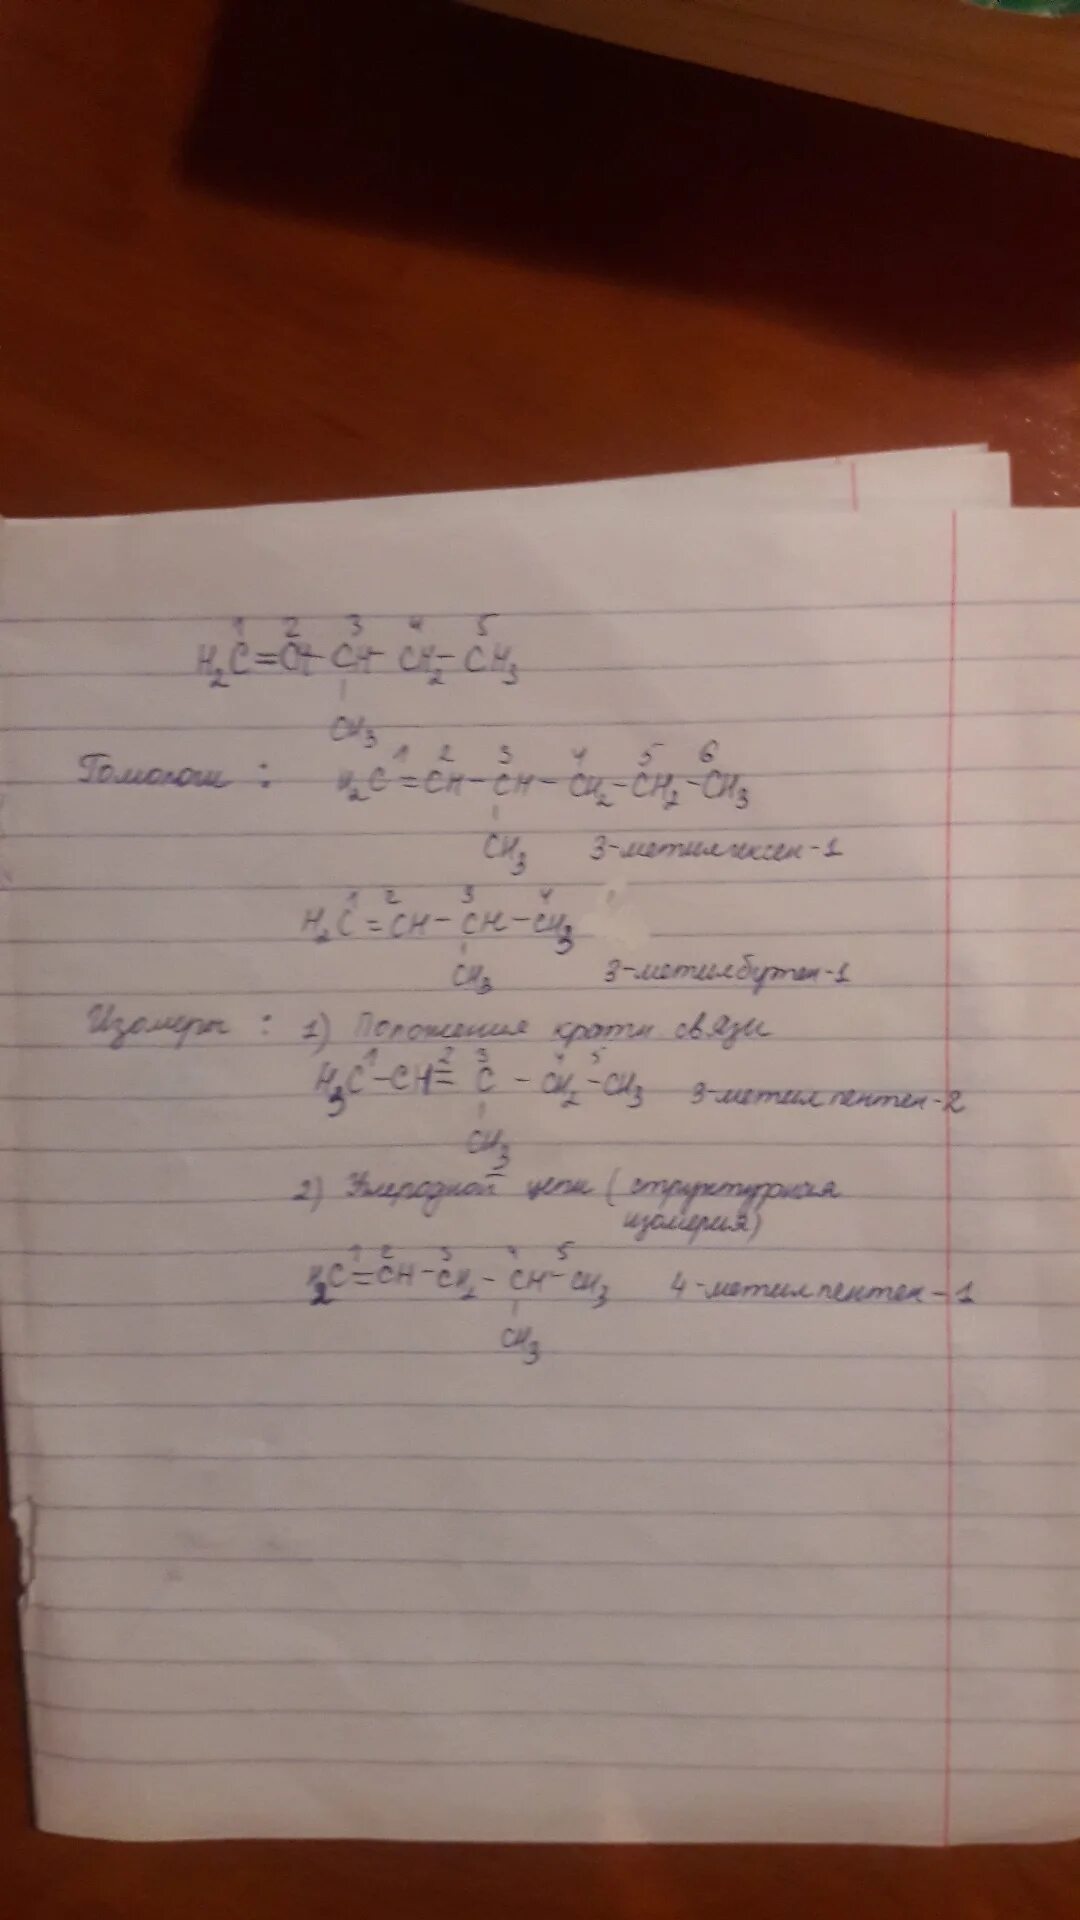 1 2 3 4 5
H₂C=CH-CH-CH₂-CH₃
CH₃
1 2 3 4 5 6
Гомологи : H₂C=CH-CH-CH₂-CH₂-CH₃
CH₃ 3-метилгексен-1
1 2 3 4
H₂C=CH-CH-CH₃
CH₃ 3-метилбутен-1
Изомеры : 1) Положения кратн связи
1 2 3 4 5
H₃C-CH=C-CH₂-CH₃ 3-метилпентен-2
CH₃
2) Углеродной цепи (структурная
изомерия)
1 2 3 4 5
H₂C=CH-CH₂-CH-CH₃ 4-метилпентен-1
CH₃